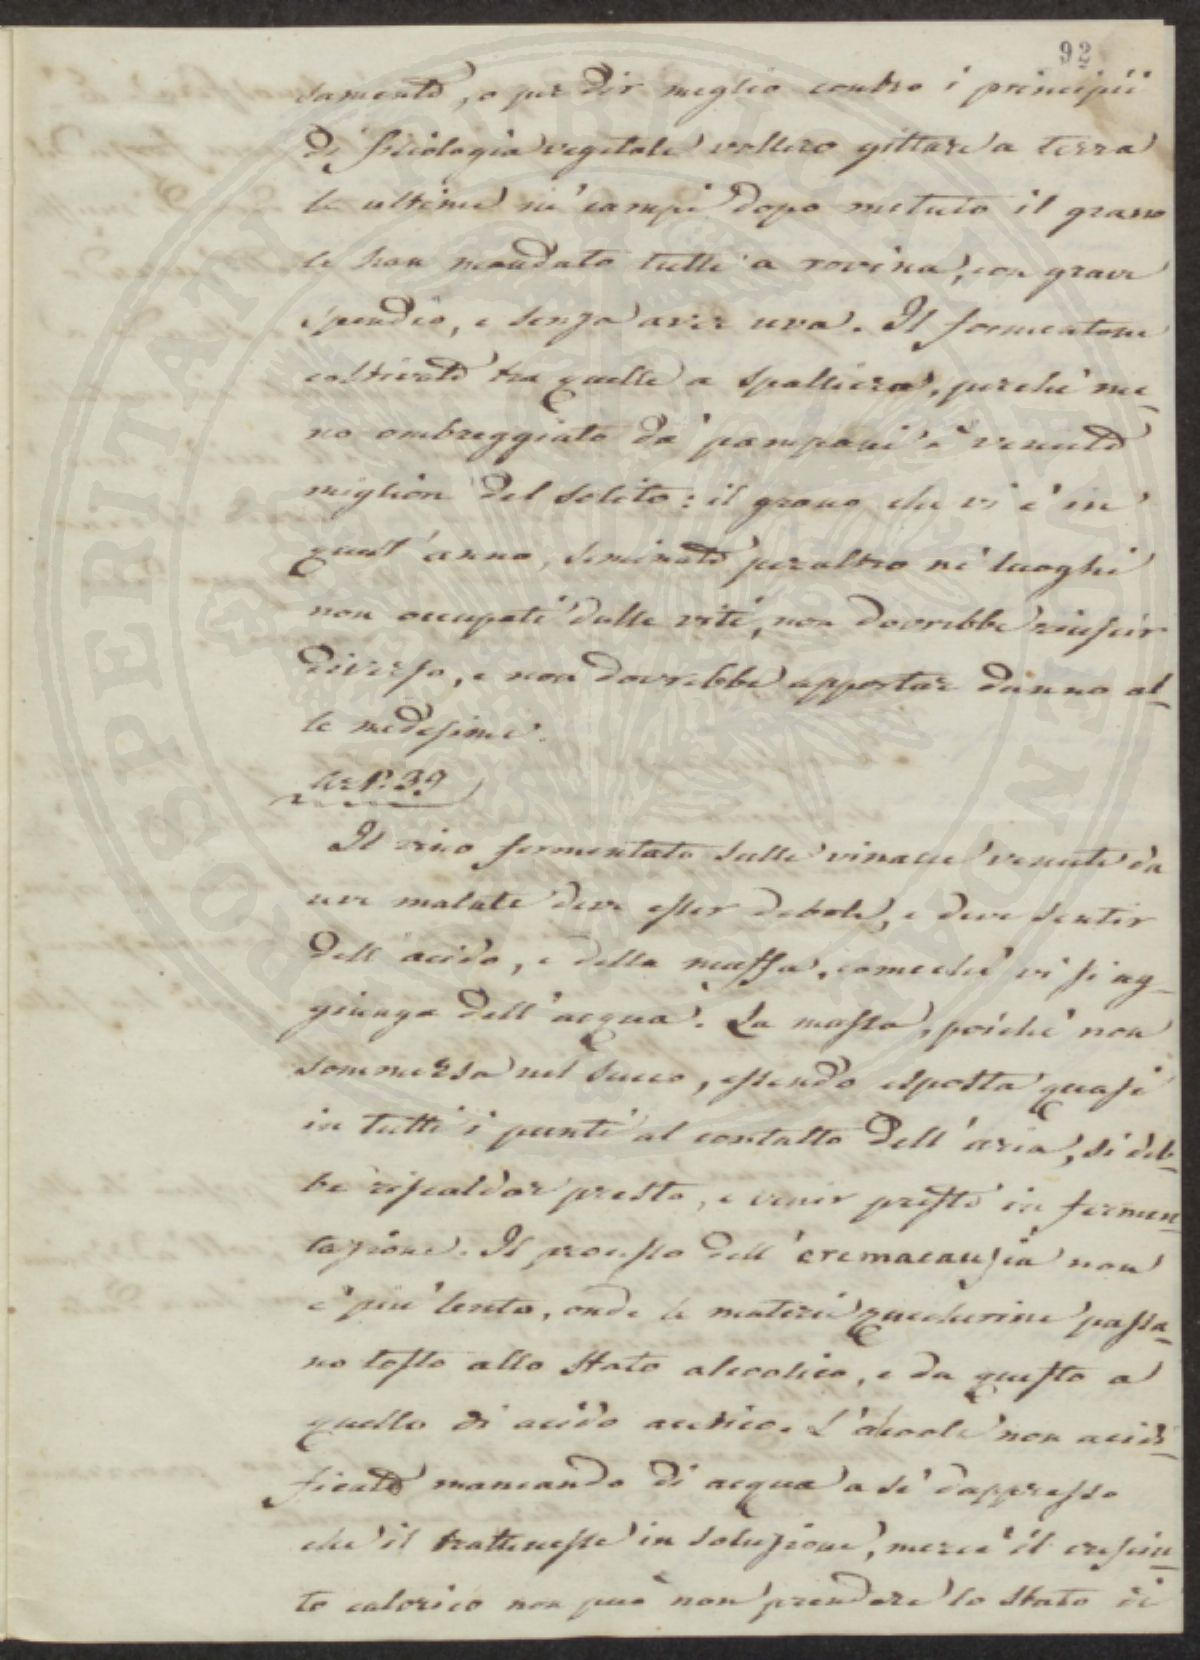 92
samente, o per dir meglio contro i principii
di fisiologia vegetale vollero gittare a terra
le ultime ne' campi dopo mietuto il grano
le han mandato tutte a rovina, con grave
spendio, e senza aver uva. Il formentone
coltivato tra quelle a spalliera, perchè me-
no ombreggiato da' pampani è venuto
miglior del solito: il grano che vi è in
quest'anno, seminato peraltro ne' luoghi
non occupati dalle viti, non dovrebbe riuscir
diverso, e non dovrebbe apportar danno al-
le medesime.
Art. 39
Il vino fermentato sulle vinacce venute da
uve malate deve esser debole, e deve sentir
dell'acido, e della muffa, comechè vi si ag-
giunga dell'acqua. La massa, poichè non
sommersa nel succo, essendo esposta quasi
in tutti i punti al contatto dell'aria, si deb-
be riscaldar presto, e venir presto in fermen-
tazione. Il processo dell'eremacausia non
è più lento, onde le materie zuccherine passa-
no tosto allo stato alcoolico, e da questo a
quello di acido acetico. L'alcoole non acidi-
ficato mancando di acqua a sè dappresso
che il trattenesse in soluzione, mercè il cresciu-
to calorico non può non prendere lo stato di